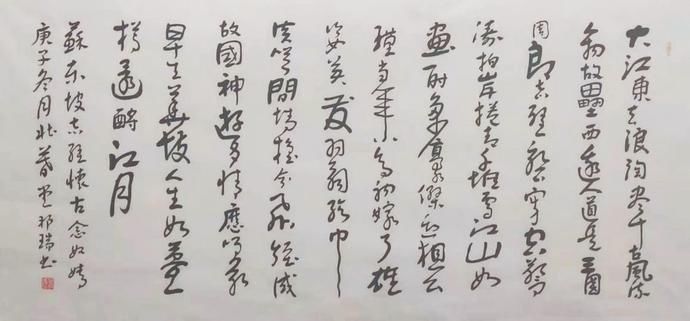 大江東去浪淘盡千古風流
人物故壘西邊人道是三國
周郎赤壁亂石穿空驚
濤拍岸捲起千堆雪江山如
畫一時多少豪傑遙想公
瑾當年小喬初嫁了雄
姿英發羽扇綸巾
談笑間檣櫓灰飛煙滅
故國神遊多情應笑我
早生華髮人生如夢一
樽還酹江月
蘇東坡赤壁懷古念奴嬌
庚子冬月 瑞书